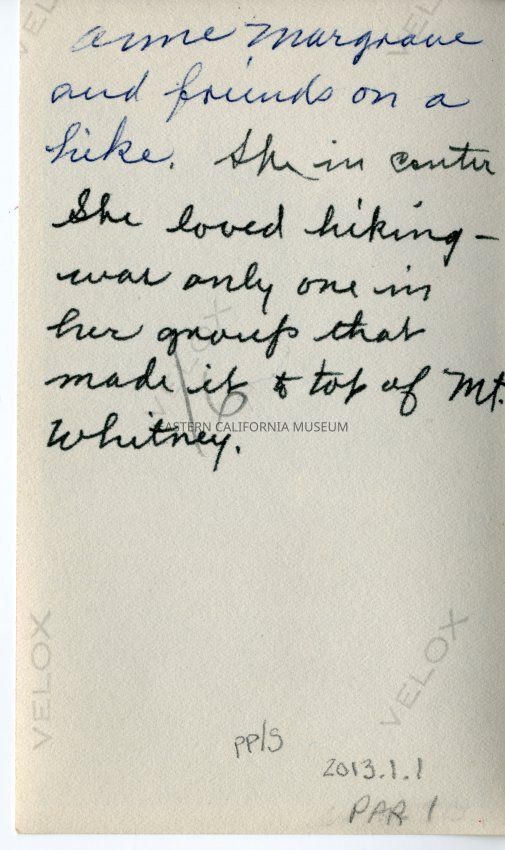 Anne Margrave
and friends on a
hike. She in center
She loved hiking -
was only one in
her group that
made it to top of Mt.
Whitney.
16
EASTERN CALIFORNIA MUSEUM
VELOX
VELOX
VELOX
VELOX
PP/S
2013.1.1
PAR 1